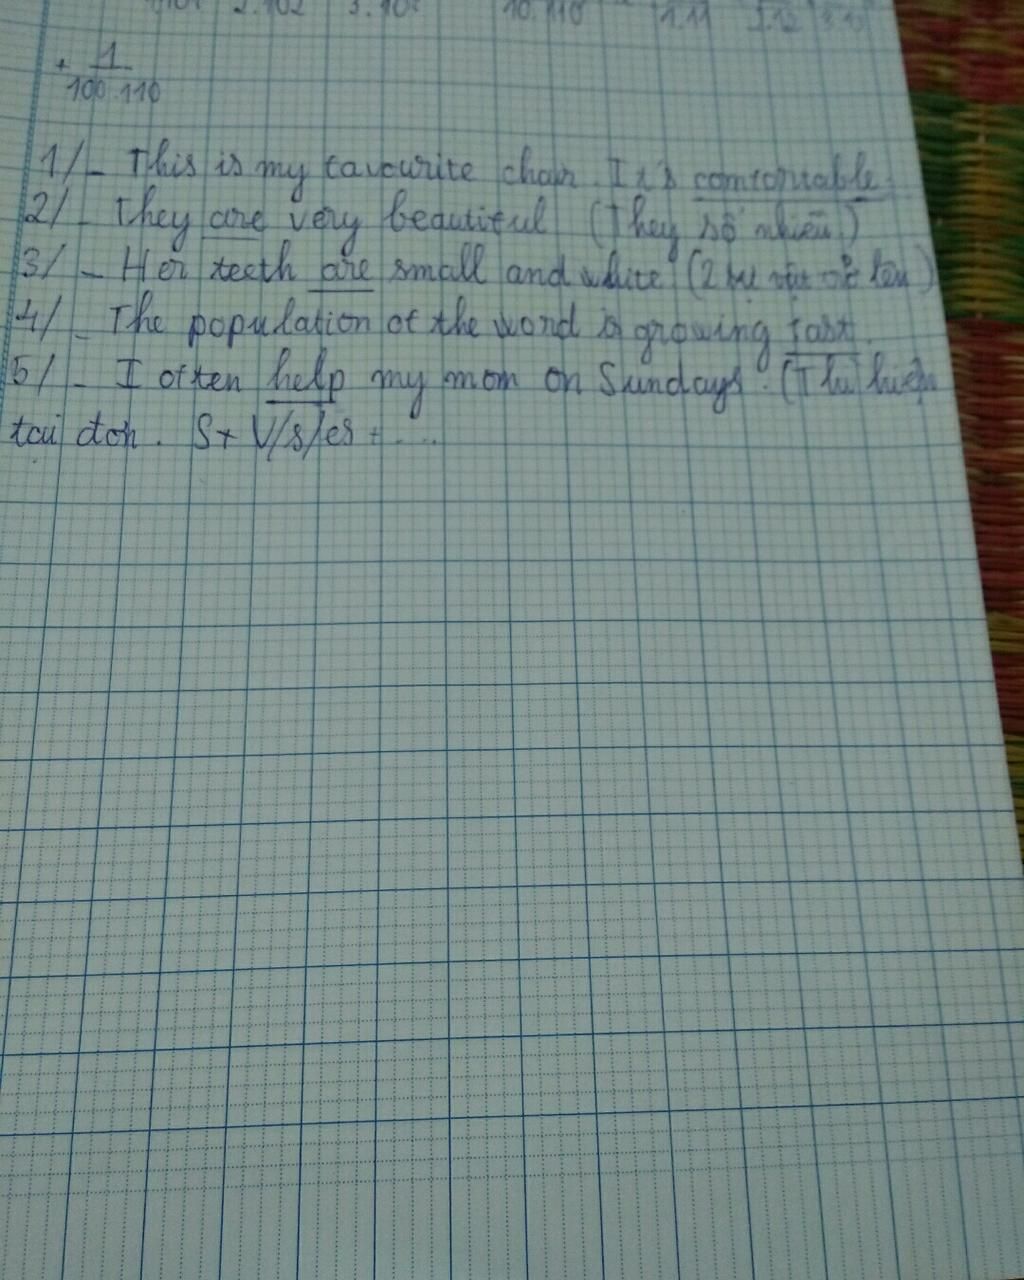 2.102 3.10 10.110 1.11
+ 1
100.110
1/ - This is my favourite chair. It's comfortable.
2/ - They are very beautiful (They số nhiều)
3/ - Her teeth are small and white (2 sự vật trở lên)
4/ - The population of the word is growing fast.
5/ - I often help my mom on Sundays. (Thì hiện
tại đơn. S + V/s/es + ....